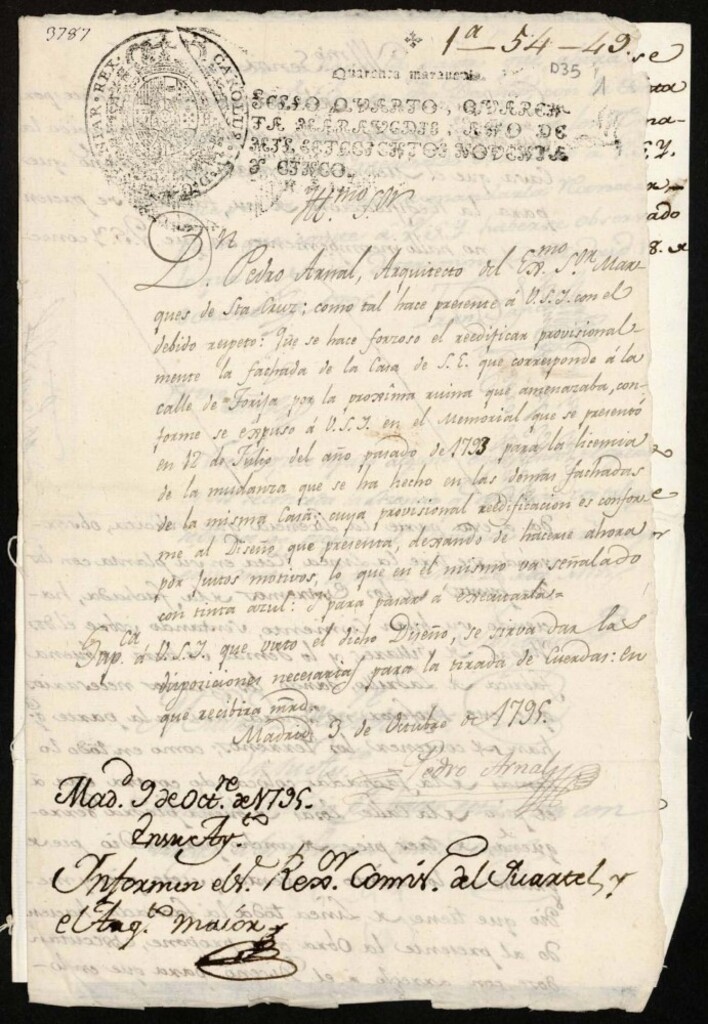 3787
CAROLUS
HISPANIAR. REX.
1ª - 54 - 49.
D35
Quarenta maravedis.
SELLO QVARTO, QVAREN-
TA MARAVEDIS, AÑO DE
MIL SETECIENTOS NOVENTA
Y CINCO.
Yllmo Sor
Dn Pedro Arnal, Arquitecto del Exmo Sor Mar-
ques de Sta Cruz; como tal hace presente á V.S.I. con el
debido respeto: Que se hace forzoso el reedificar provisional
mente la fachada de la Casa de S.E. que corresponde á la
calle de Torija por la proxîma ruina que amenazaba, con-
forme se expuso á V.S.I. en el Memorial que se presentó
en 12 de Julio del año pasado de 1793 para la licencia
de la mudanza que se ha hecho en las demas fachadas
de la misma Casa; cuya provisional reedificacion es confor-
me al Diseño que presenta, dexando de hacerse ahora
por justos motivos, lo que en el mismo va señalado
con tinta azul: y para pasar á executarlas=
Supca á V.S.I. que visto el dicho Diseño, se sirva dar las
disposiciones necesarias para la tirada de Cuerdas: en
que recibira mrd.
Madrid 3 de Octubre de 1795.
Pedro Arnal
Madd. 9 de Octre de 1795.
En su Ayto
Informen el Sr. Rexor Comis. del Quartel, y
el Arqto maior